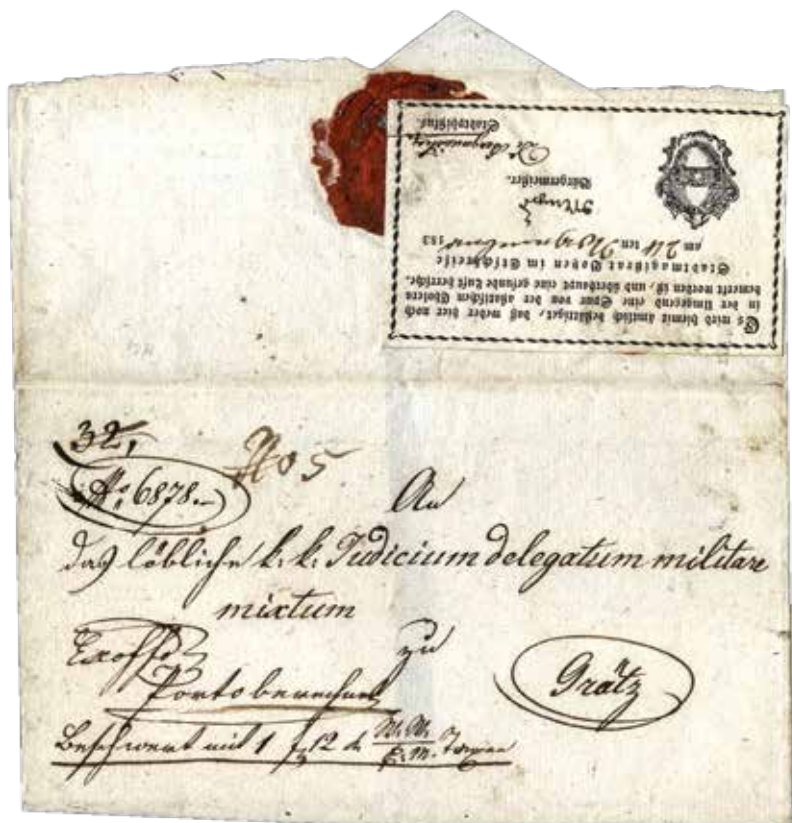 Es wird hiemit ämtlich bestättiget, daß weder hier noch
in der Umgegend eine Spur von der asiatischen Cholera
bemerkt worden ist, und überhaupt eine gesunde Luft herrsche.
Stadtmagistrat Botzen im Etschkreise
am 24 ten 183
Bürgermeister.
Stadtphysikus.
32,
No 5
No. 6878.
An
das löbliche k: k: Judicium delegatum militare
mixtum
Exoffo zu
Porto
Grätz
Beschwert mit 1 f 12 W. W.